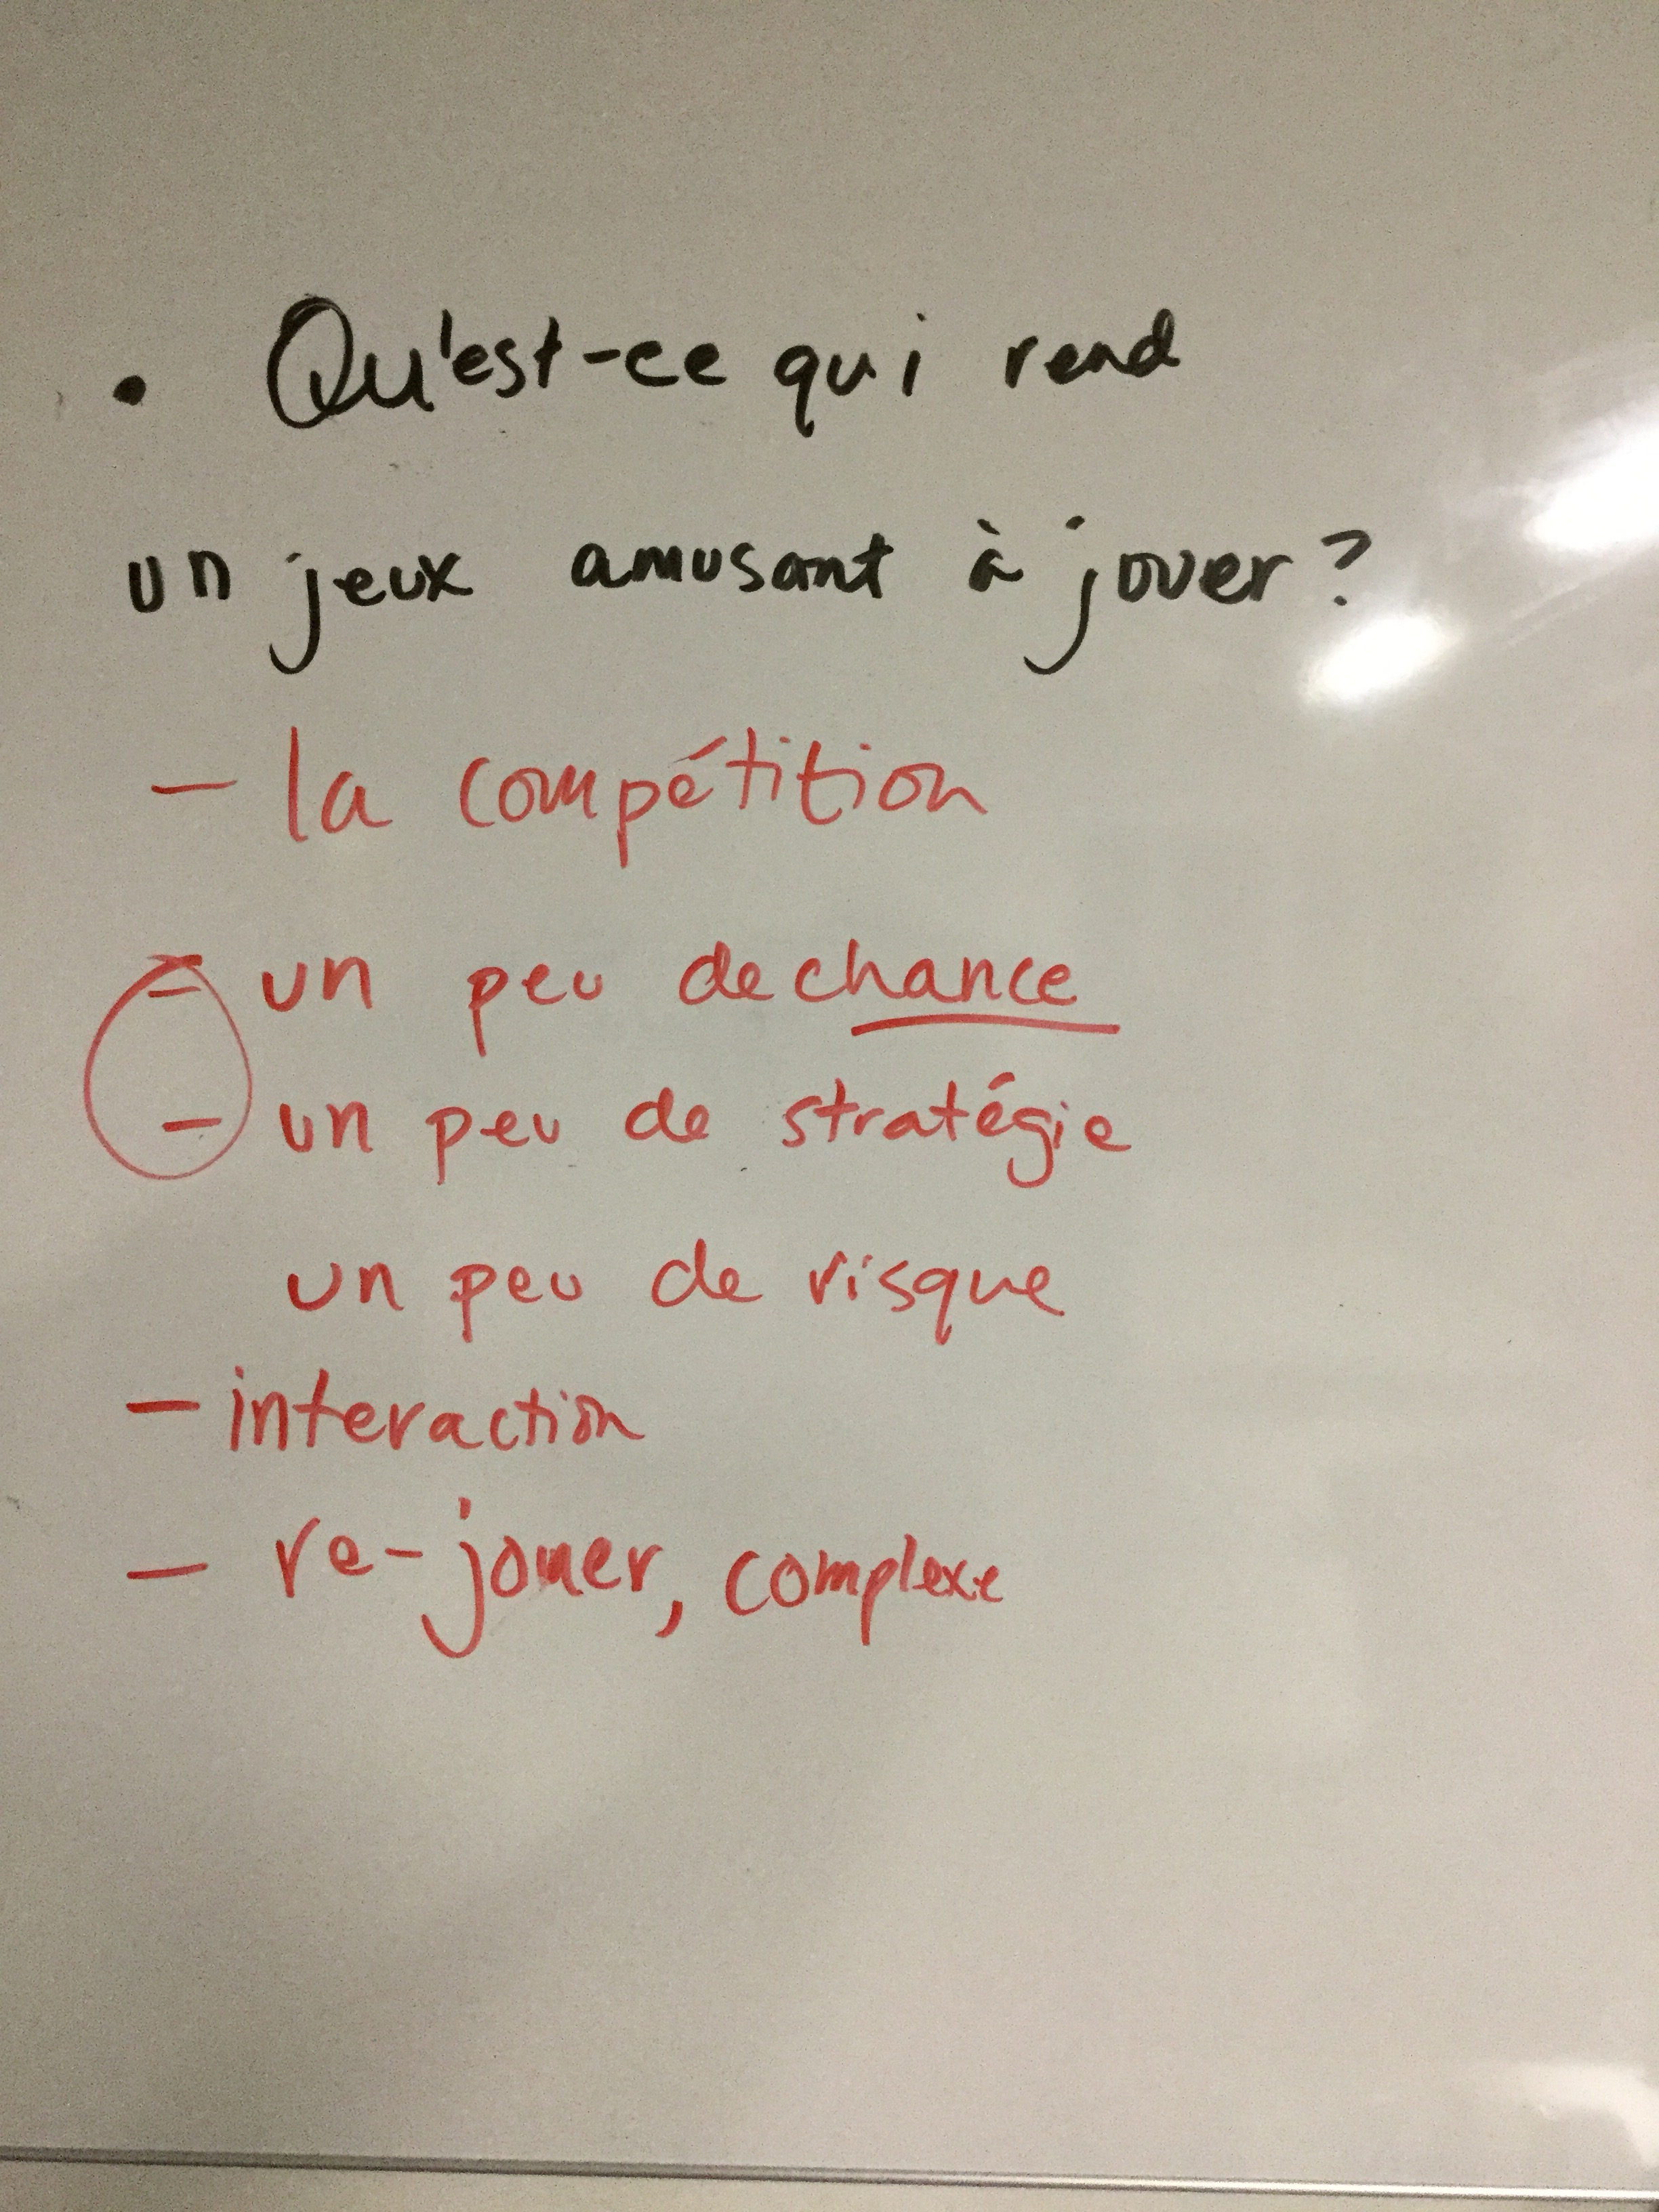 • Qu'est-ce qui rend
un jeux amusant à jouer?
- la compétition
- un peu de chance
- un peu de stratégie
un peu de risque
- interaction
- re-jouer, complexe